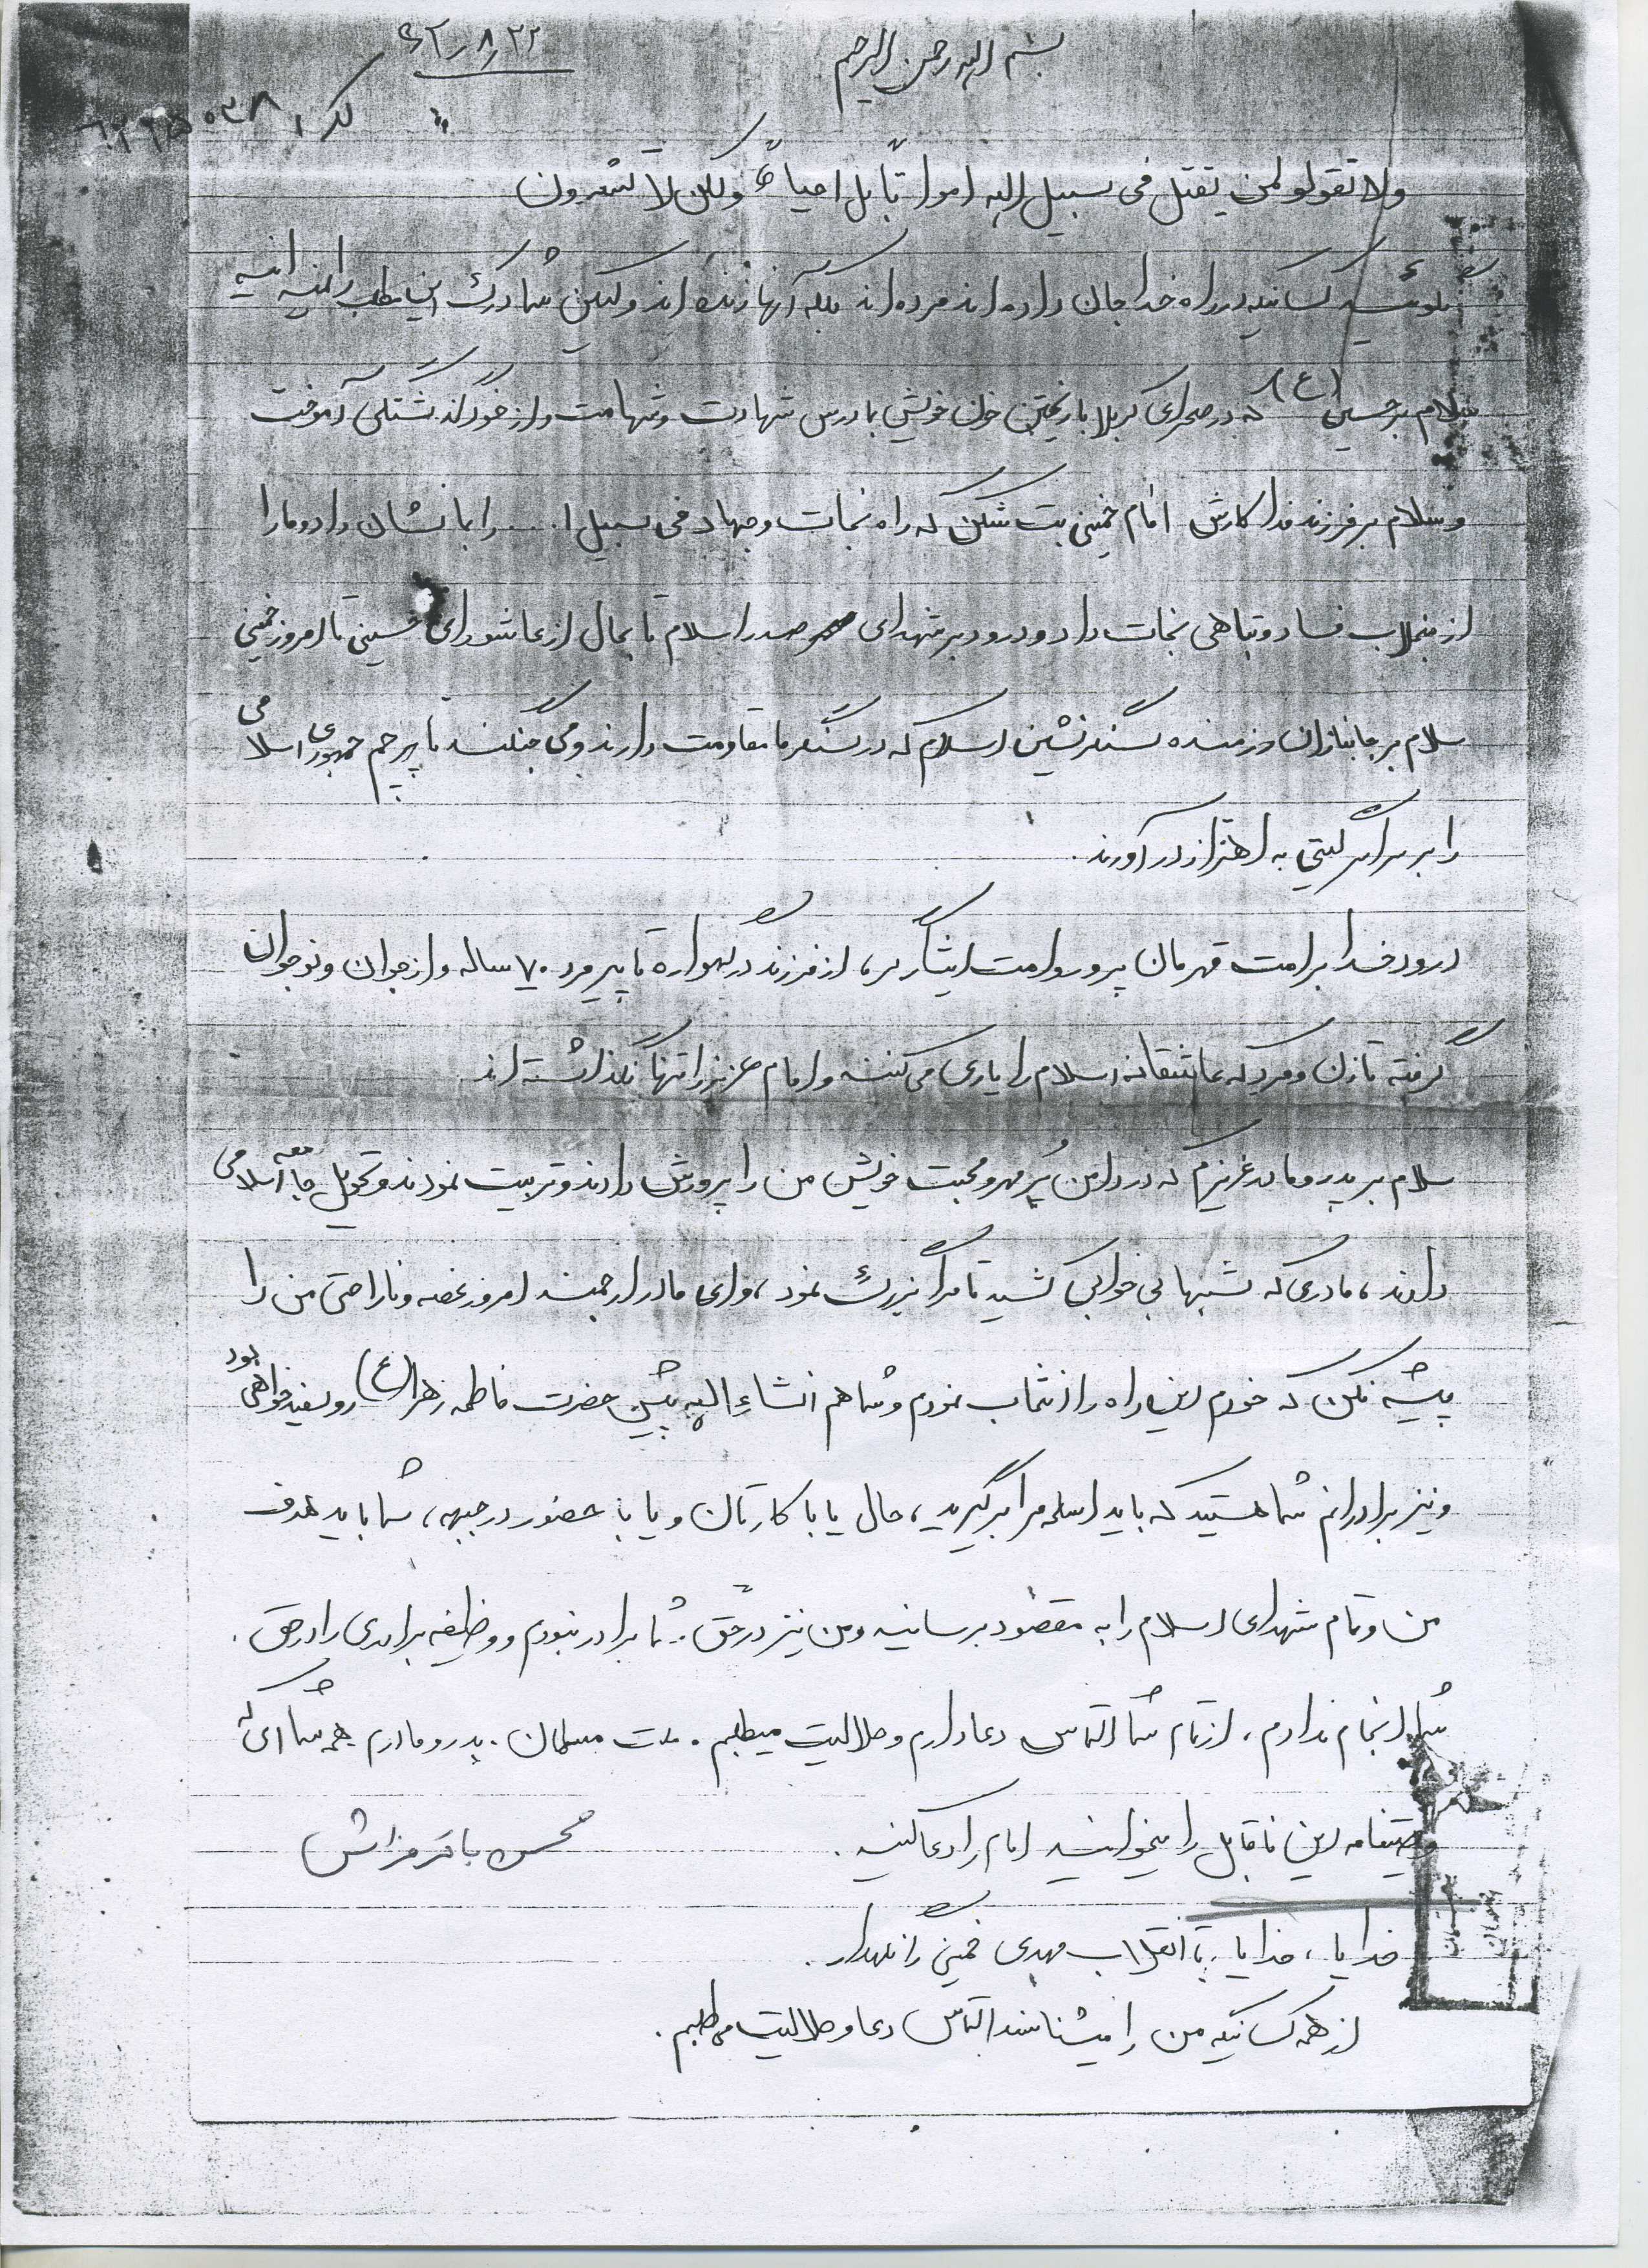 بسم الله رحمن الرحیم
۶۲/۸/۲۲
کد
ولا تقولو لمن یقتل فی سبیل الله اموا تاً بل احیاءٌ ولکن لا تشعرون
نگوئید کسانیکه در راه خدا جان داده اند مرده اند بلکه آنها زنده اند ولیکن شما درک این مطلب را
سلام بر حسین (ع) که در صحرای کربلا با ریختن خون خویش بما درس شهادت وشهامت واز خود گذشتگی آموخت
وسلام بر فرزند فدا کارش امام خمینی بت شکن که راه نجات وجهاد فی سبیل ا..... را بما نشان داد و ما را
از منجلاب فساد و تباهی نجات داد و درود بر شهدای صدر اسلام تا بحال از عاشورای حسینی تا امروز خمینی
سلام بر جانبازان رزمنده سنگر نشین اسلام که در سنگر ها مقاومت دارند و می جنگند تا پرچم جمهوری اسلامی
را بر سراسر گیتی به اهتزاز در آورند.
درود خدا بر امت قهرمان پرور و امت ایثارگر، از فرزند در گهواره تا پیر مرد ۷۰ ساله و از جوان و نوجوان
گرفته تا زن و مرد که عاشقانه اسلام را یاری می کنند و امام عزیز را تنها نگذاشته اند
سلام بر پدر و مادر عزیزم که در دامن پُر مهر و محبت خویش من را پرورش دادند و تربیت نمودند و تحویل جامعه اسلامی
دادند، مادری که شبها بی خوابی کشید تا مرا بزرگ نمود، وای مادر ارجمند امروز غصه و ناراحتی من را
پیشه نکن که خودم این راه را انتخاب نمودم و شما هم انشاء الله پیش حضرت فاطمه زهرا (ع) رو سفید خواهی بود
و نیز برادرانم شما هستید که باید اسلحه مرا بر گیرید، حال یا با کارتان و یا با حضور در جبهه، شما باید هدف
من و تمام شهدای اسلام را به مقصود برسانید و من نیز در حق شما برادر نبودم و وظیفه برادری را در حق
شما انجام ندادم، از تمام شما التماس دعا دارم و حلالیت میطلبم. ملت مسلمان. پدر و مادرم همه شما ای که
وصیتنامه این ناقابل را میخوانید امام را دعا کنید.
محسن باقر
خدایا، خدایا، تا انقلاب مهدی خمینی را نگهدار.
از همه کسانیکه من را میشناسند التماس دعا و حلالیت می طلبم.